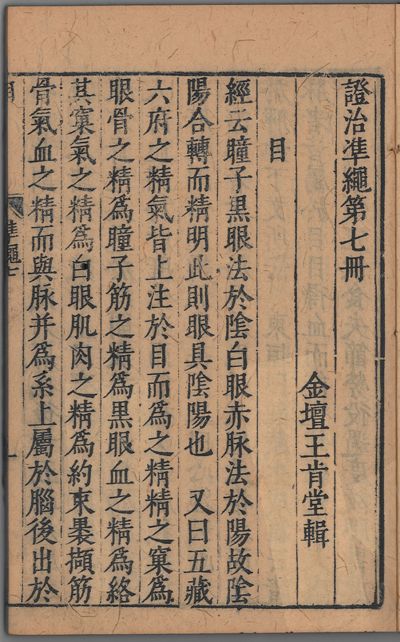 證治準繩第七冊
金壇王肯堂輯
目
經云瞳子黑眼法於陰白眼赤脉法於陽故陰
陽合轉而精明此則眼具陰陽也　又曰五藏
六府之精氣皆上注於目而為之精精之窠為
眼骨之精為瞳子筋之精為黑眼血之精為絡
其窠氣之精為白眼肌肉之精為約束裹擷筋
骨氣血之精而與脉并為系上屬於腦後出於